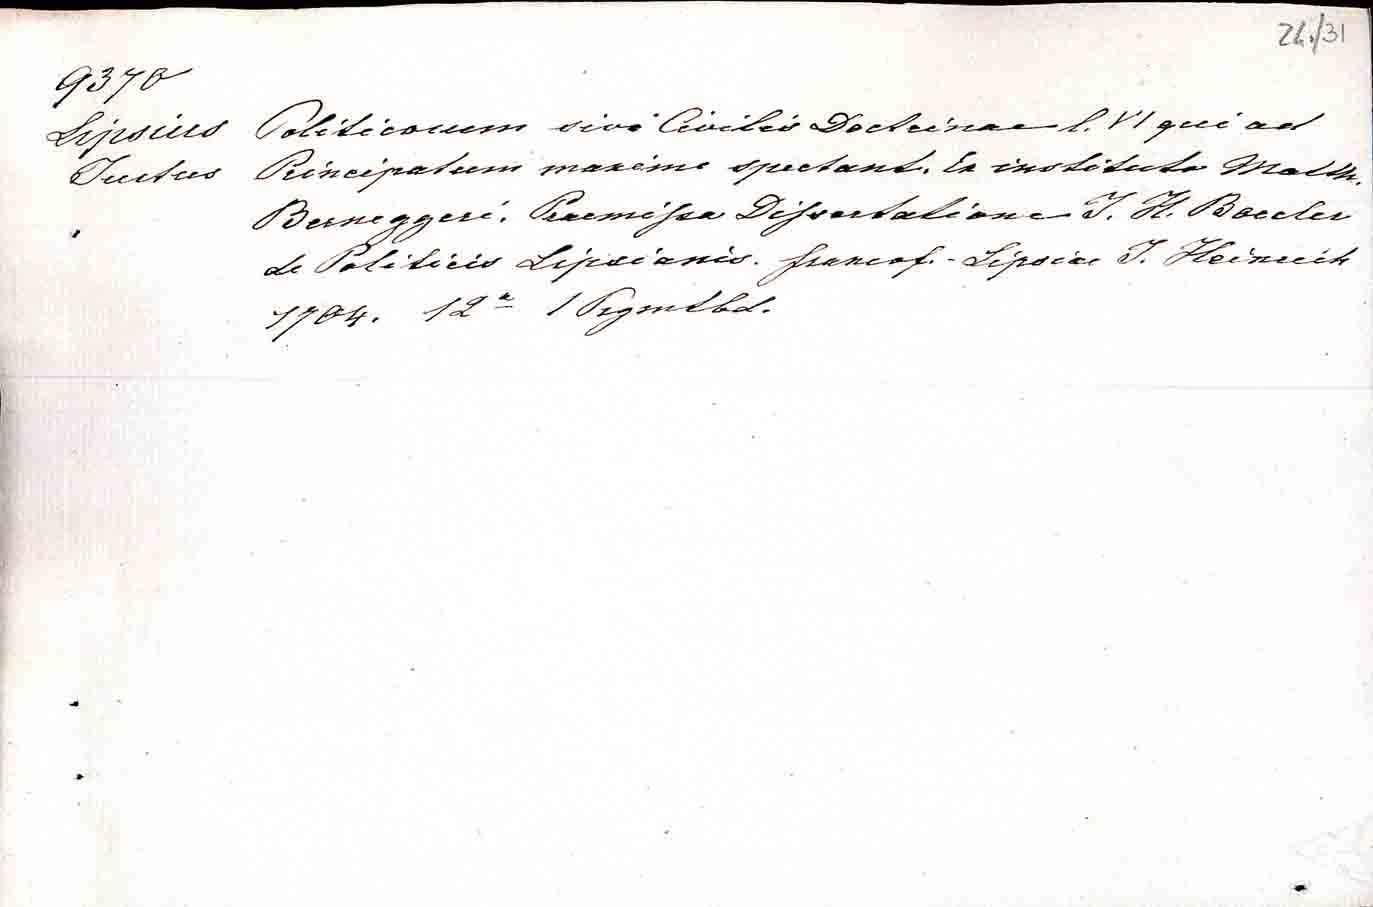 24./31
9370
Lipsius Politicorum sive Civilis Doctrinae l. VI qui ad
Justus Principatum maxime spectant. Ex instituto Matth.
Berneggeri. Praemissa Dissertatione J. H. Boecler
de Politicis Lipsianis. Francof.-Lipsiae J. Heinrich
1704. 12° 1 Prgmtbd.